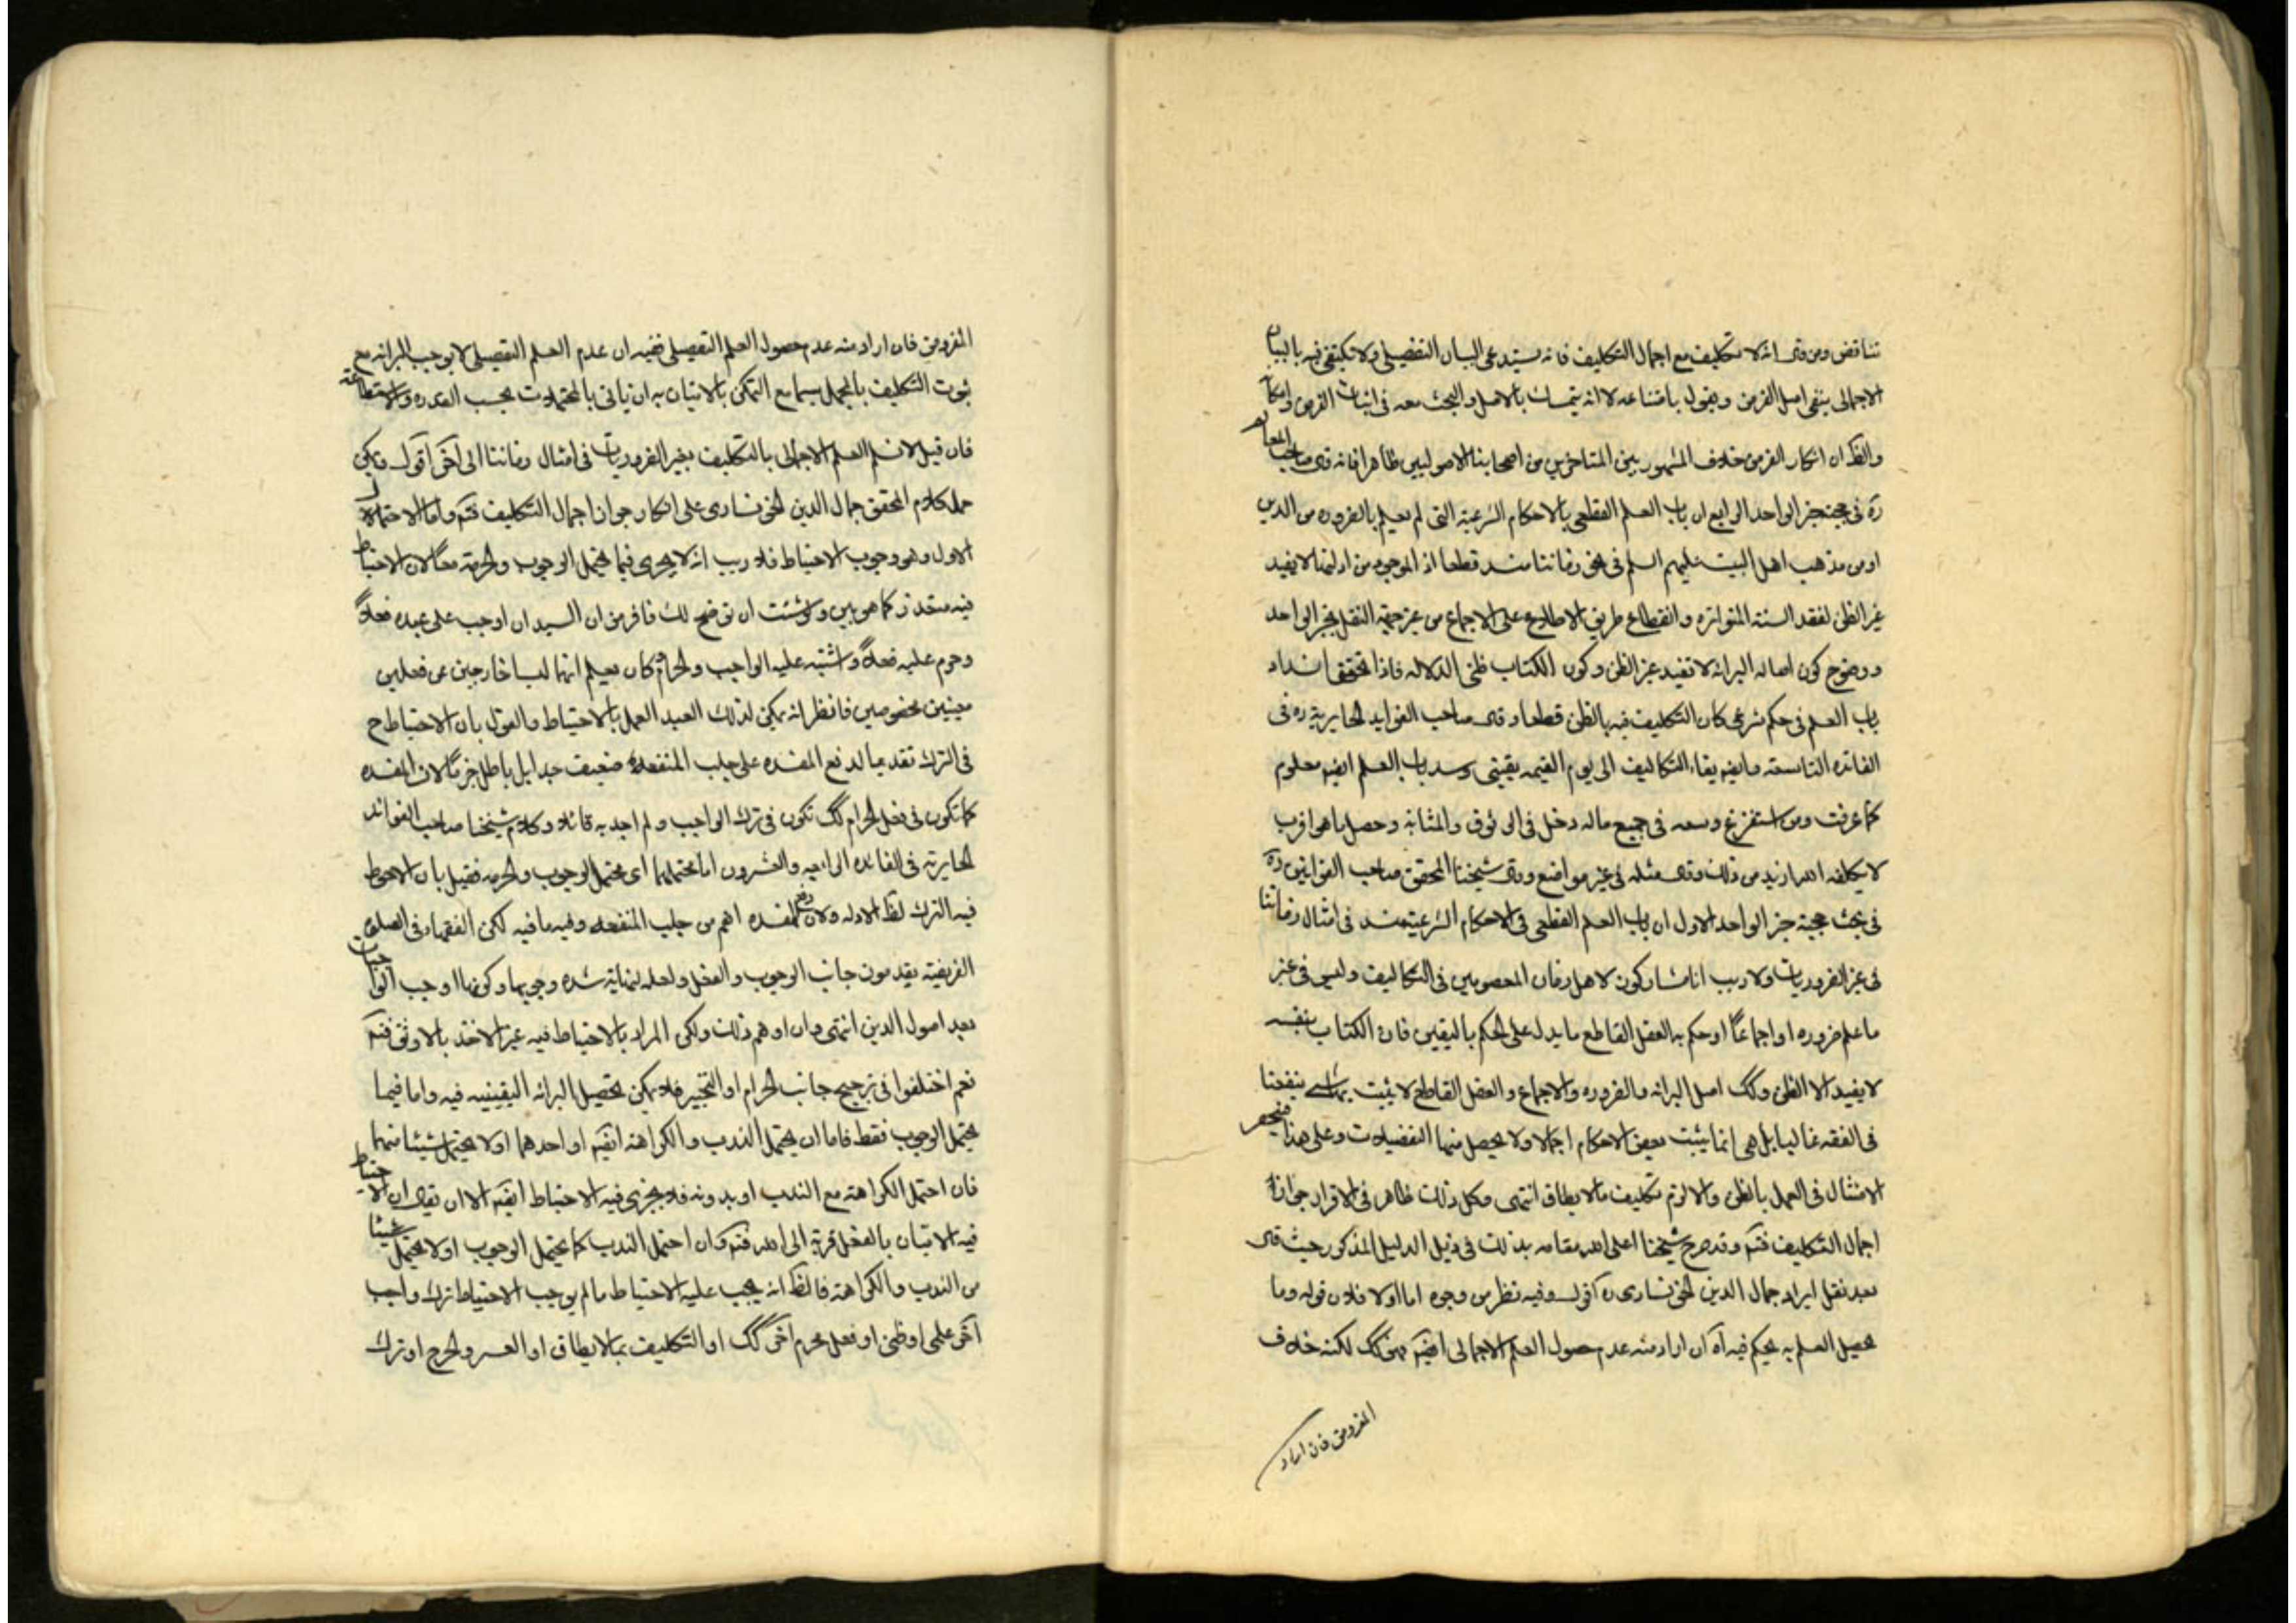 تناقض ومن قال انه لا تكليف مع اجمال التكليف فانه يستدعى البيان التفصيلى ولا يكتفى فيه بالبيان
الاجمالى ينفى اصل الفرض ويقول بامتناعه لا انه يتمسك بالاصل والبحث معه فى اثبات الفرض وامكانه
والظ ان انكار الفرض خلاف المشهور بين المتاخرين من اصحابنا الاصوليين ظاهرا فانه قال صاحب المعالم
ره فى حجية خبر الواحد الرابع ان باب العلم القطعى بالاحكام الشرعية التى لم يعلم بالضروره من الدين
او من مذهب اهل البيت عليهم السلم فى نحو زماننا منسد قطعا اذ الموجود من ادلتها لا يفيد
غير الظن لفقد السنة المتواتره وانقطاع طريق الاطلاع على الاجماع من غير جهة النقل بخبر الواحد
ووضوح كون اصاله البرائه لا تفيد غير الظن وكون الكتاب ظنى الدلاله فاذا تحقق انسداد
باب العلم فى حكم شرعى كان التكليف فيه بالظن قطعا وقال صاحب الفوايد الحايرية ره فى
الفائده التاسعة وايضا بقاء التكاليف الى يوم القيمه يقينى وسد باب العلم ايضم معلوم
كما عرفت ومن استفرغ وسعه فى جميع ماله دخل فى الوثوق والمتانه وحصل ما هو اقرب
لا يكلفه الله ازيد من ذلك وقال مثله فى غير مواضع وقال شيخنا المحقق صاحب القوانين ره
فى بحث حجية خبر الواحد الاول ان باب العلم القطعى فى الاحكام الشرعية منسد فى امثال زماننا
فى غير الضروريات ولا ريب انا مشاركون لاهل زمان المعصومين فى التكاليف وليس فى غير
ما علم ضروره او اجماعاً او حكم به العقل القاطع ما يدل على الحكم باليقين فان الكتاب بنفسه
لا يفيد الا الظن وكك اصل البرائه والضروره والاجماع والعقل القاطع لا يثبت بها شىء ينفعنا
فى الفقه غالبا بل هى انما يثبت بعض الاحكام اجمالا ولا يحصل منها التفضيلات وعلى هذا فينحصر
الامتثال فى العمل بالظن والا لزم تكليف ما لا يطاق انتهى وكل ذلك ظاهر فى الاقرار بجواز
اجمال التكليف فتم وقد صرح شيخنا اعلى الله مقامه بذلك فى ذيل الدليل المذكور حيث قال
بعد نقل ايراد جمال الدين الخونسارى ره اقول وفيه نظر من وجوه اما اولا فلان قوله وما
يحصل العلم به يحكم فيه آه ان اراد منه عدم حصول العلم الاجمالى ايضم فهو كك لكنه خلاف
المفروض فان اراد
المفروض فان اراد منه عدم حصول العلم التفصيلى ففيه ان عدم العلم التفصيلى لا يوجب البرائه مع
ثبوت التكليف بالمجمل سيما مع التمكن بالاتيان به ان ياتى بالمحتملات بحسب القدره والاستطاعة
فان قيل لا نسلم العلم الاجمالى بالتكليف بغير الضروريات فى امثال زماننا الى آخر اقول ويمكن
حمل كلام المحقق جمال الدين الخونسارى على انكار جواز اجمال التكليف فتم واما الاحتمال
الاول وهو وجوب الاحتياط فلا ريب انه لا يجرى فيما يحتمل الوجوب والحرمة معاً لان الاحتياط
فيه متعذر كما هو بين ولو شئت ان نوضح لك فافرض ان السيد ان اوجب على عبده فعلاً
وحرم عليه فعلاً واشتبه عليه الواجب والحرام وكان يعلم انهما ليسا خارجين عن فعلين
معينين مخصوصين فانظر انه يمكن لذلك العبد العمل بالاحتياط والقول بان الاحتياط ح
فى الترك تقديما لدفع المفسده على جلب المنفعة ضعيف جدا بل باطل جزماً لان المفسده
كما تكون فى فعل الحرام كك تكون فى ترك الواجب ولم اجد به قائلا وكلام شيخنا صاحب الفوائد
الحايرية فى الفائده الرابعه والعشرون اما محتملهما اى محتمل الوجوب والحرمه فقيل بان الاحوط
فيه الترك لظ الادله ولان دفع المفسده اهم من جلب المنفعه وفيه ما فيه لكن الفقهاء فى الصلوة
الفريضة يقدمون جانب الوجوب والفعل ولعله لنهاية شده وجوبها وكونها اوجب الواجبات
بعد اصول الدين انتهى وان اوهم ذلك ولكن المراد بالاحتياط فيه غير الاخذ بالاوثق فتم
نعم اختلفوا فى ترجيح جانب الحرام او التخيير فلا يمكن تحصيل البرائه اليقينيه فيه واما فيما
يحتمل الوجوب فقط فاما ان يحتمل الندب والكراهة ايضم او احدهما او لا يحتمل شيئا منهما
فان احتمل الكراهة مع الندب او بدونه فلا يجرى فيه الاحتياط ايضم الا ان يقال ان الاحتياط
فيه الاتيان بالفعل قربة الى الله فتم وان احتمل الندب كما يحتمل الوجوب او لا يحتمل شيئا
من الندب والكراهة فالظ انه يجب عليه الاحتياط ما لم يوجب الاحتياط ترك واجب
آخر علمى او ظنى او فعل محرم آخر كك او التكليف بما لا يطاق او العسر والحرج او ترك